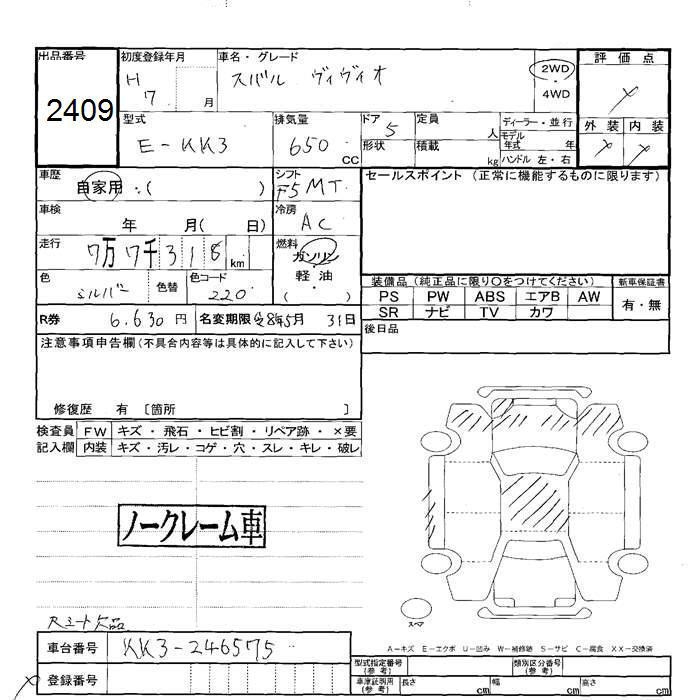 出品番号 初度登録年月 車名・グレード 評価点
2409 H 7 月 スバル ヴィヴィオ 2WD ・ 4WD
型式 排気量 ドア 定員 ディーラー・並行 外装 内装
E-KK3 650 CC 5 人 モデル年式 年
形状 積載 kg ハンドル 左・右
車歴 自家用・( ) シフト F5 MT セールスポイント (正常に機能するものに限ります)
車検 年 月( 日) 冷房 AC
走行 7万7千318 km 燃料 ガソリン 軽油 ( )
色 シルバー 色替 色コード 220 装備品 (純正品に限り○をつけてください) 新車保証書
PS PW ABS エアB AW 有・無
SR ナビ TV カワ
R券 6,630 円 名変期限 28年5月 31日 後日品
注意事項申告欄 (不具合内容等は具体的に記入して下さい)
修復歴 有 〔箇所 〕
検査員 FW キズ・飛石・ヒビ割・リペア跡・×要
記入欄 内装 キズ・汚レ・コゲ・穴・スレ・キレ・破レ
ノークレーム車
欠品
スペア
A-キズ E-エクボ U-凹み W-補修跡 S-サビ C-腐食 XX-交換済
車台番号 KK3-246575
型式指定番号 (参考) 類別区分番号 (参考)
登録番号 車庫証明用 (参考) 長さ cm 幅 cm 高さ cm